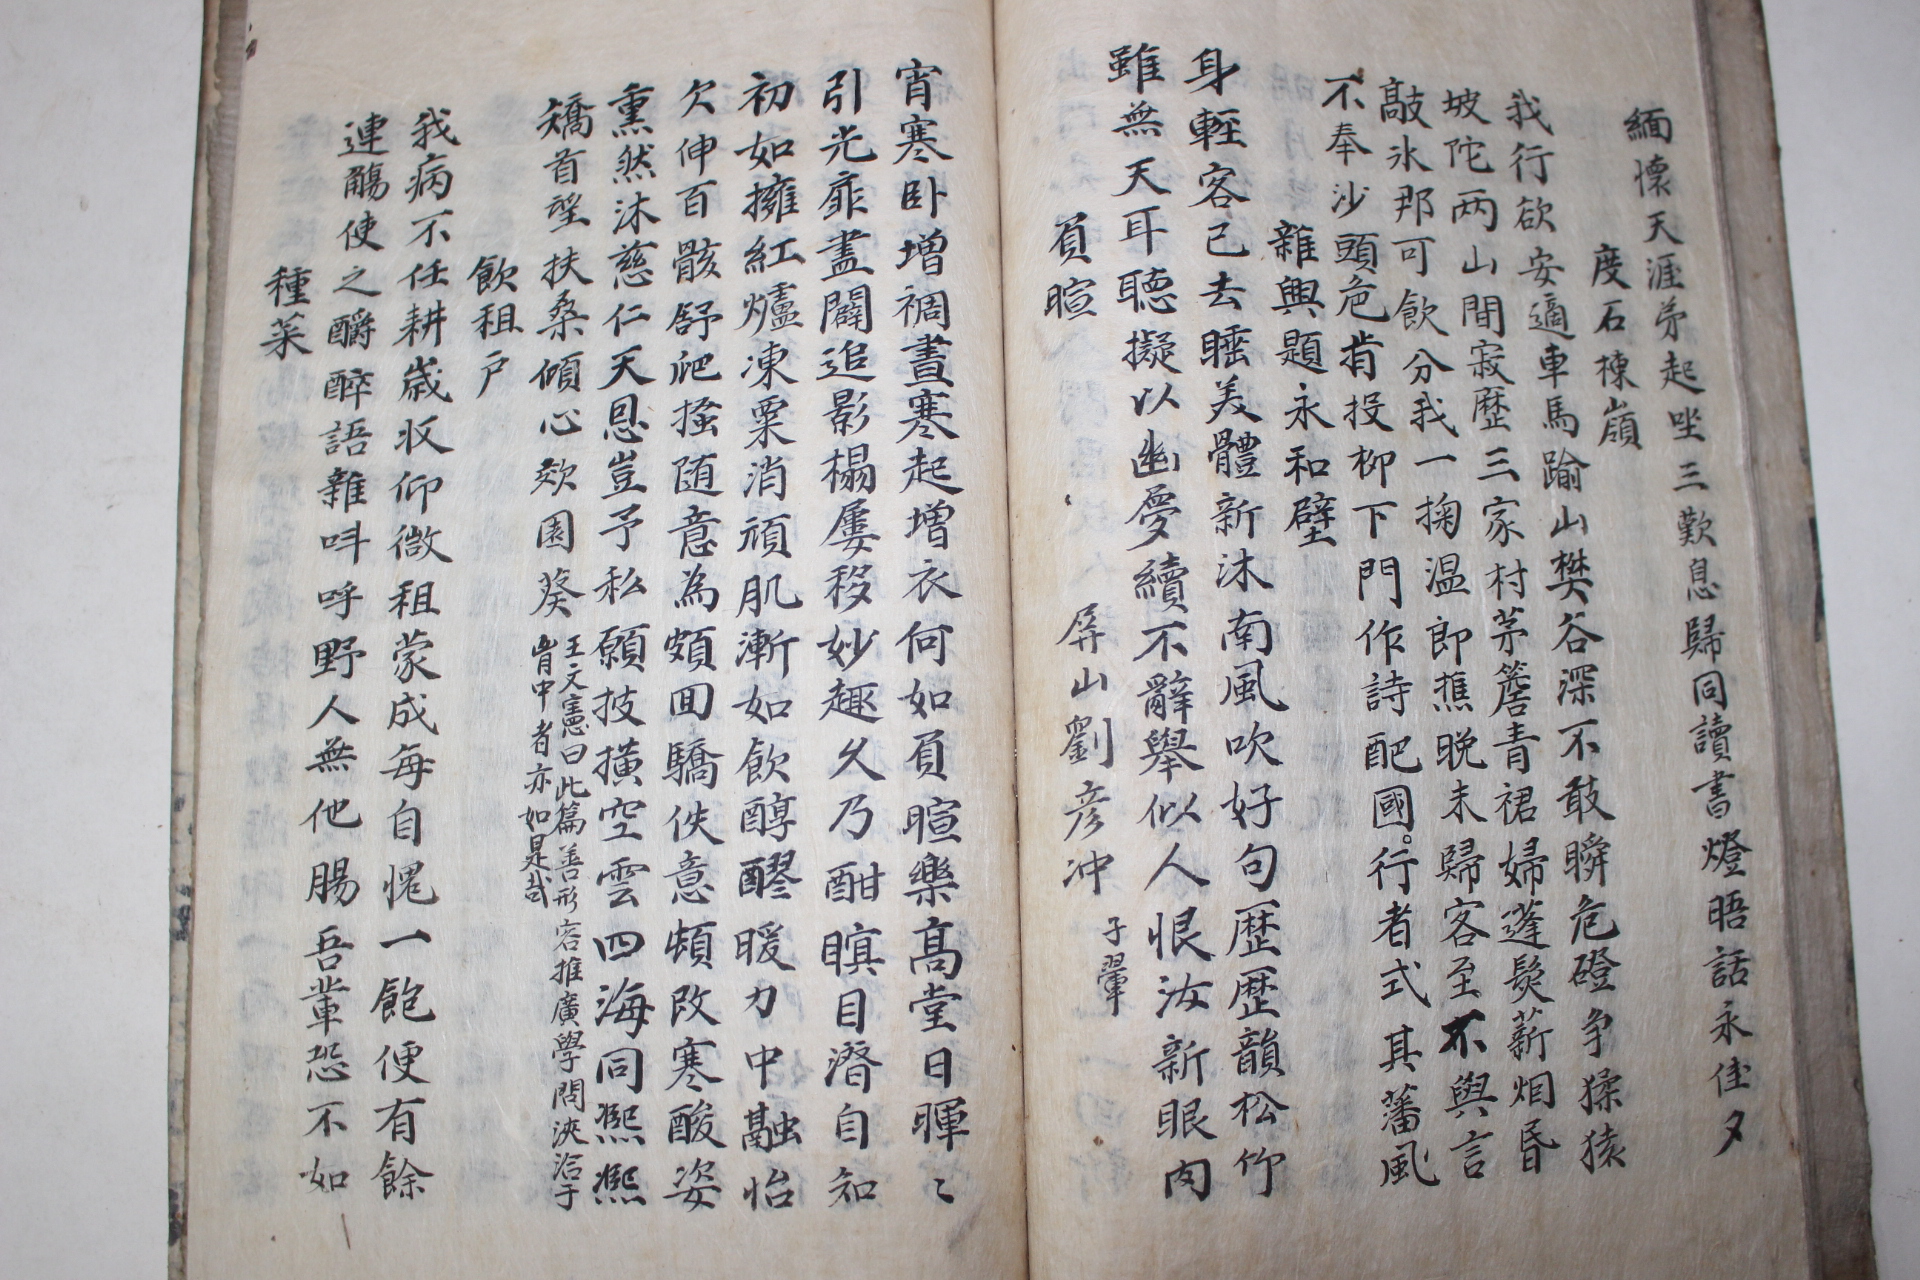 緬懷天涯弟起坐三歎息歸同讀書燈晤話永佳夕
度石棟嶺
我行欲安適車馬踰山樊谷深不敢瞬危磴争猱猿
坡陀两山間寂歷三家村茅簷青裙婦蓬鬓薪烟昏
敲氷那可飲分我一掬温即樵晚未歸客至不與言
不奉沙頭危肯投柳下門作詩配國。行者式其藩風
雜興題永和壁
身輕客已去睡美體新沐南風吹好句歷歷韻松竹
雖無天耳聽擬以幽憂續不辭舉似人恨汝新眼肉
負暄　屏山劉彦冲子翬
宵寒卧增裯晝寒起增衣何如負暄樂高堂日暉〻
引光扉盡闢追影榻屢移妙趣久乃酣瞑目潛自知
初如擁紅爐凍粟消頑肌漸如飲醇醪暖力中融怡
欠伸百骸舒爬搔随意為頗回驕佚意頓改寒酸姿
熏然沐慈仁天恩豈予私願技擴空雲四海同熙熙
矯首望扶桑傾心效園葵王文憲曰此篇善形容推廣學問浹洽于
胷中者亦如是哉
飲租户
我病不任耕歲収仰微租蒙成每自愧一飽便有餘
連觴使之釂醉語雜呌呼野人無他腸吾輩恐不如
種菜